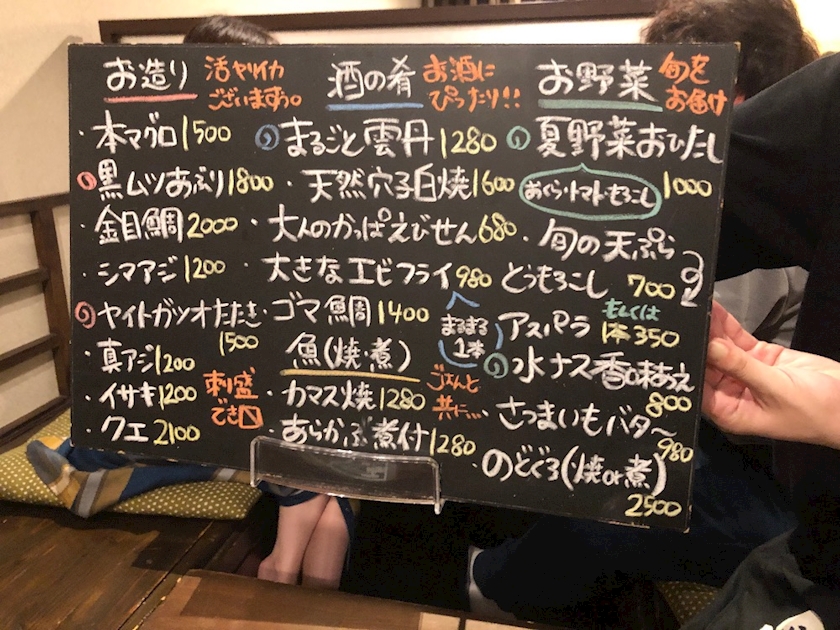 お造り
活ヤリイカ
ございますっ。
・本マグロ 1500
黒ムツあぶり 1800
・金目鯛 2000
・シマアジ 1200
ヤイトガツオたたき
1500
・真アジ 1200
・イサキ 1200
・クエ 2100
刺盛
でき〼
酒の肴
お酒に
ぴったり!!
まるごと雲丹 1280
・天然穴子白焼 1600
・大人のかっぱえびせん 680
・大きなエビフライ 980
まるまる
1本
・ゴマ鯛 1400
魚(焼・煮)
ごはんと
共に…
・カマス焼 1280
・あらかぶ煮付 1280
お野菜
旬を
お届け
夏野菜おひたし
1000
おくら・トマト・もろこし
・旬の天ぷら
とうもろこし 700
もしくは
アスパラ 1本350
水ナス香味和え
800
・さつまいもバター
980
・のどぐろ(焼or煮)
2500